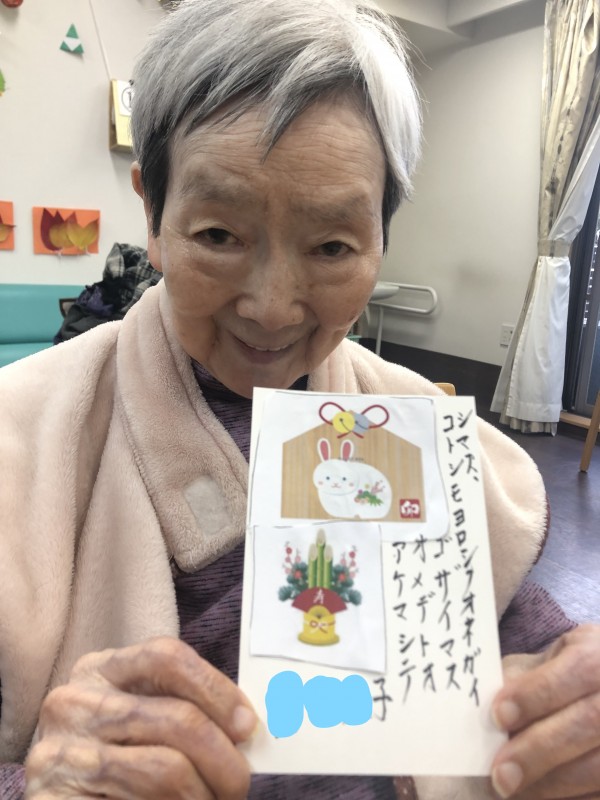 アケマシテ
オメデトオ
ゴザイマス
コトシモヨロシクオネガイ
シマス、
子
卯